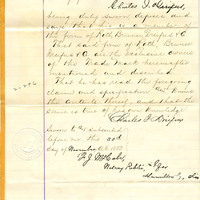 Charles F. Dreifus,
being duly sworn deposes and
says that he is a member of
the firm of Roth, Bruner, Dreifus & Co
That said firm of Roth, Bruner
Dreifus & Co are the exclusive owners
of the Trade Mark hereinafter
mentioned and described
That he has read the foregoing
claim and specification knows
the contents thereof, and that the
same is true of his own knowledge
Charles F Dreifus
Sworn to & subscribed
before me this 20th
day of November A.D. 1883
Notary Public
Hamilton Co, Ohio